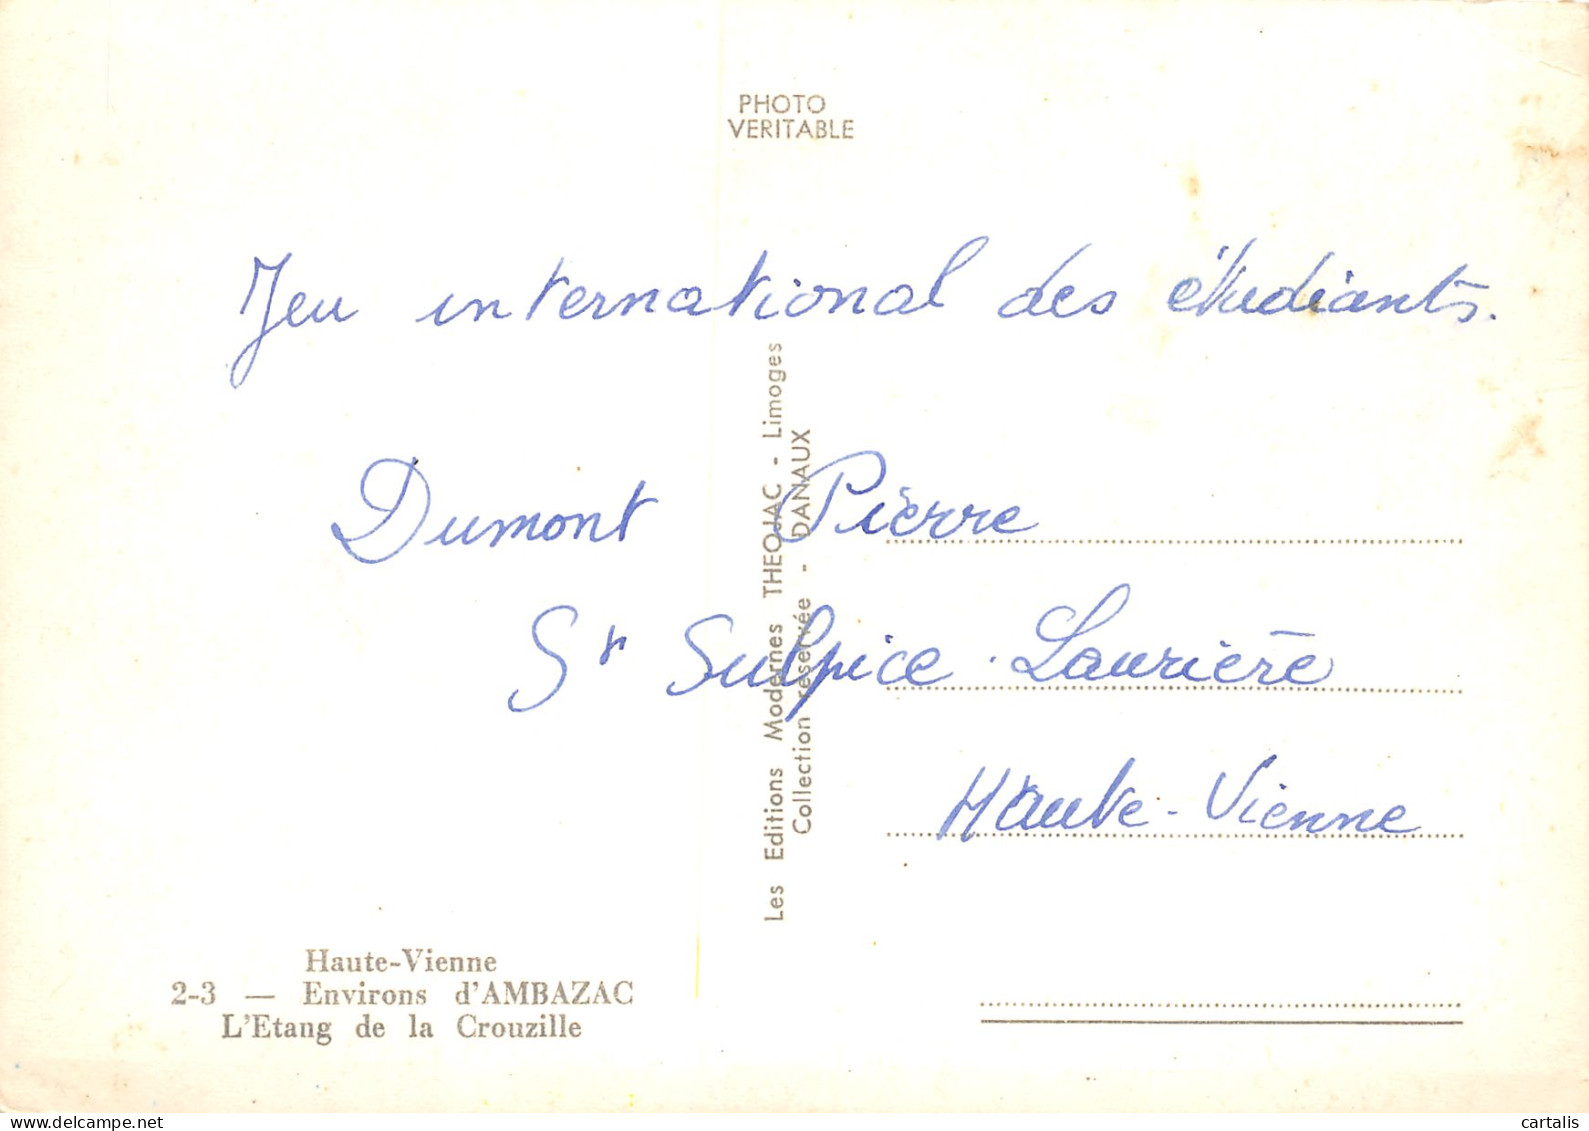 PHOTO
VERITABLE
Jeu international des étudiants.
Dumont Pierre
St Sulpice - Laurière
Haute-Vienne
Les Editions Modernes THEOJAC - Limoges
Collection réservée - DANAUX
Haute-Vienne
2-3 — Environs d'AMBAZAC
L'Etang de la Crouzille
cartalis